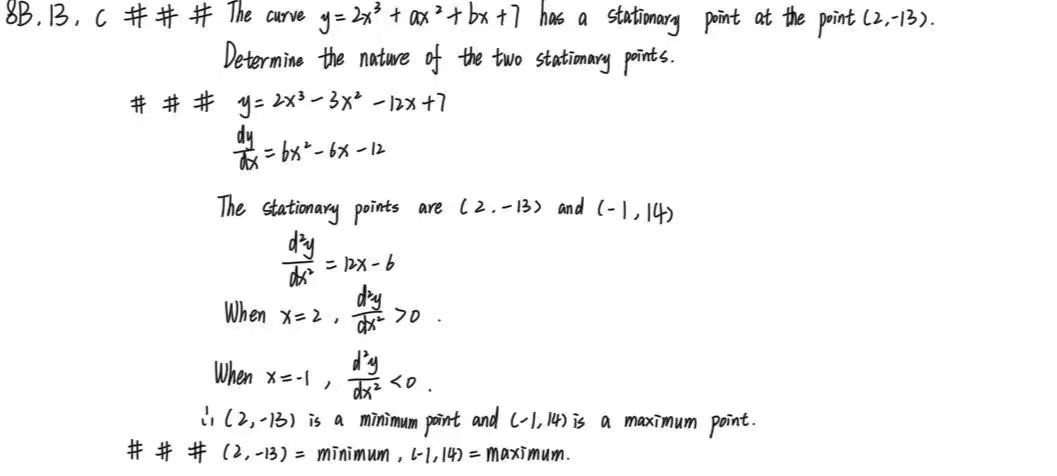 8B, 13, C # # # The curve y = 2x³ + ax² + bx + 7 has a stationary point at the point (2,-13).
Determine the nature of the two stationary points.
# # # y = 2x³ - 3x² - 12x + 7
dy/dx = 6x² - 6x - 12
The stationary points are (2,-13) and (-1,14)
d²y/dx² = 12x - 6
When x = 2, d²y/dx² > 0.
When x = -1, d²y/dx² < 0.
∴ (2,-13) is a minimum point and (-1,14) is a maximum point.
# # # (2,-13) = minimum, (-1,14) = maximum.